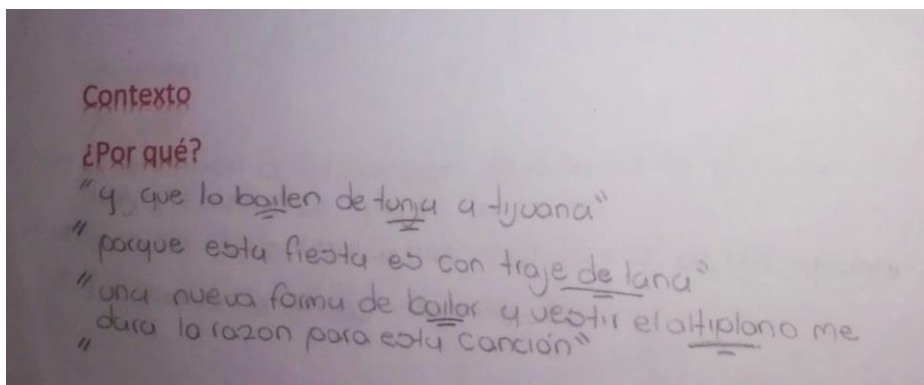 Contexto
¿Por qué?
"y que lo bailen de tunja a tijuana"
"porque esta fiesta es con traje de lana"
"una nueva forma de bailar y vestir el altiplano me
dara la razon para esta canción"
"